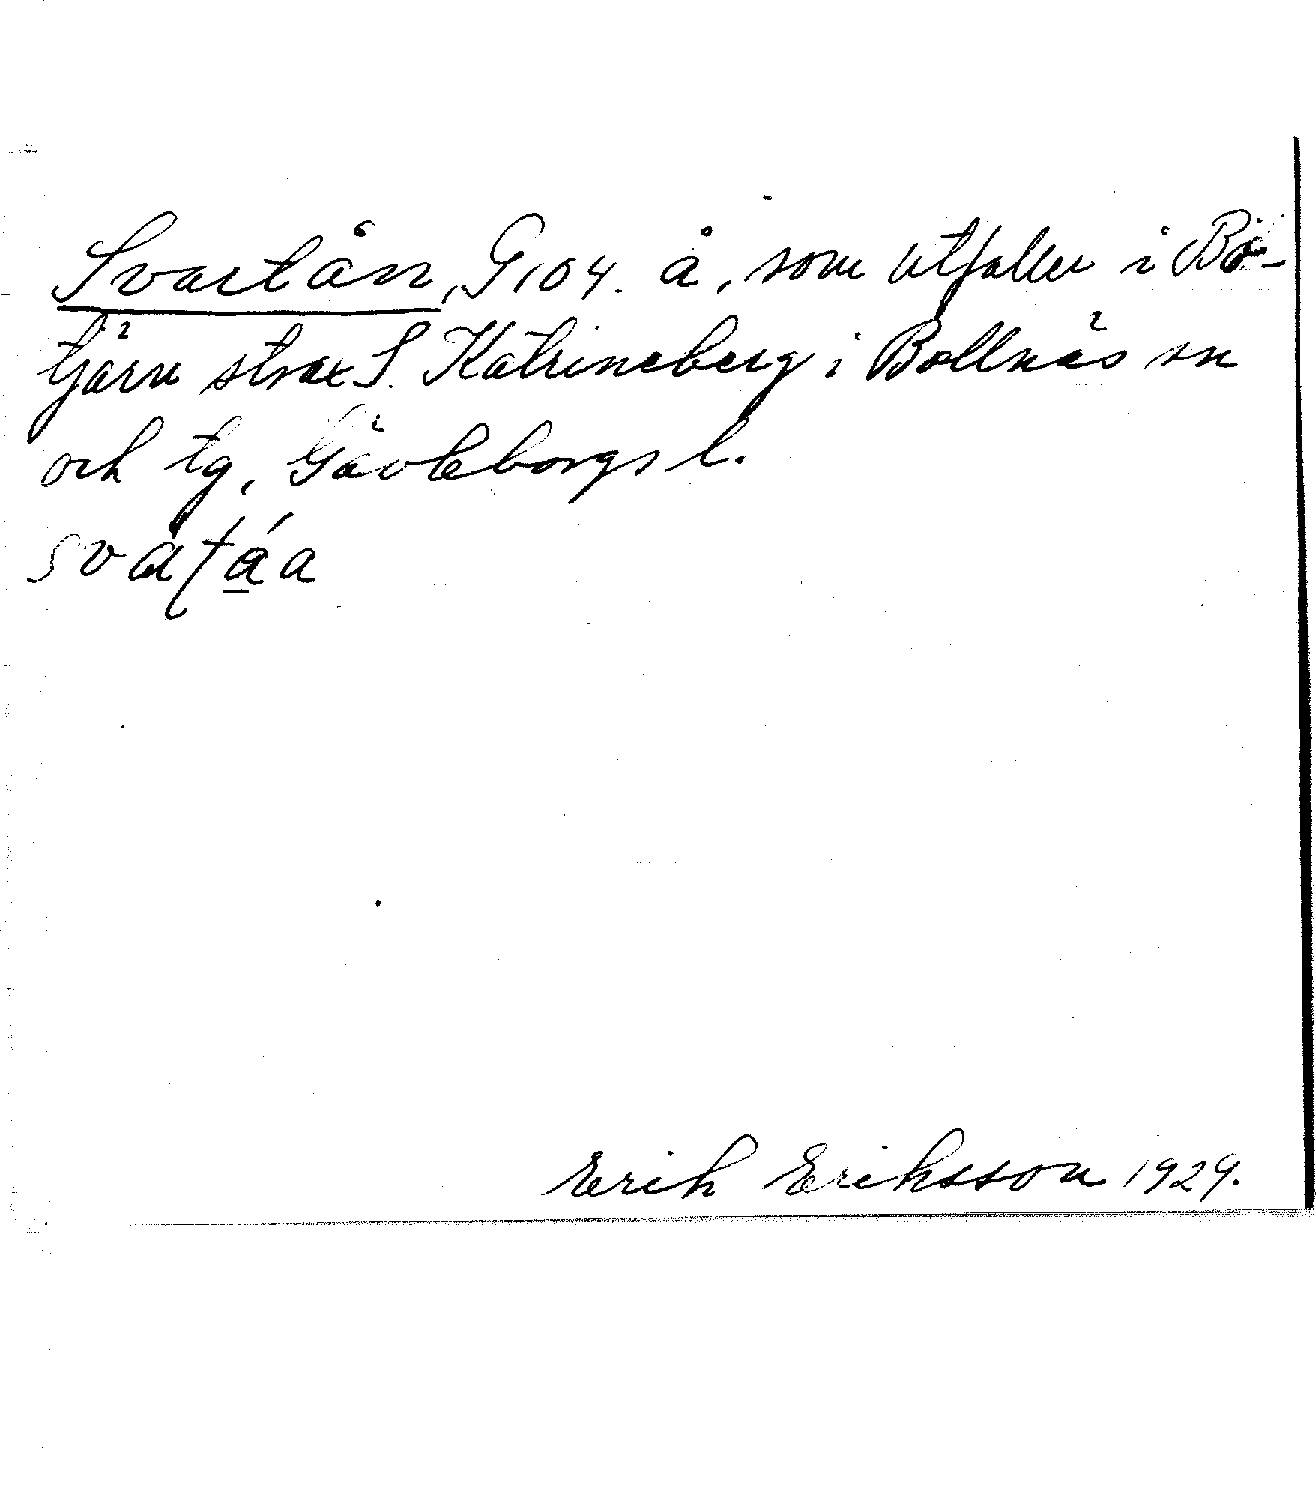 Svartån, G 104. å, som utfaller i Bö-
tjärn strax S. Katrineberg i Bollnäs sn
och tg, Gävleborgs l.
Erik Eriksson 1929.